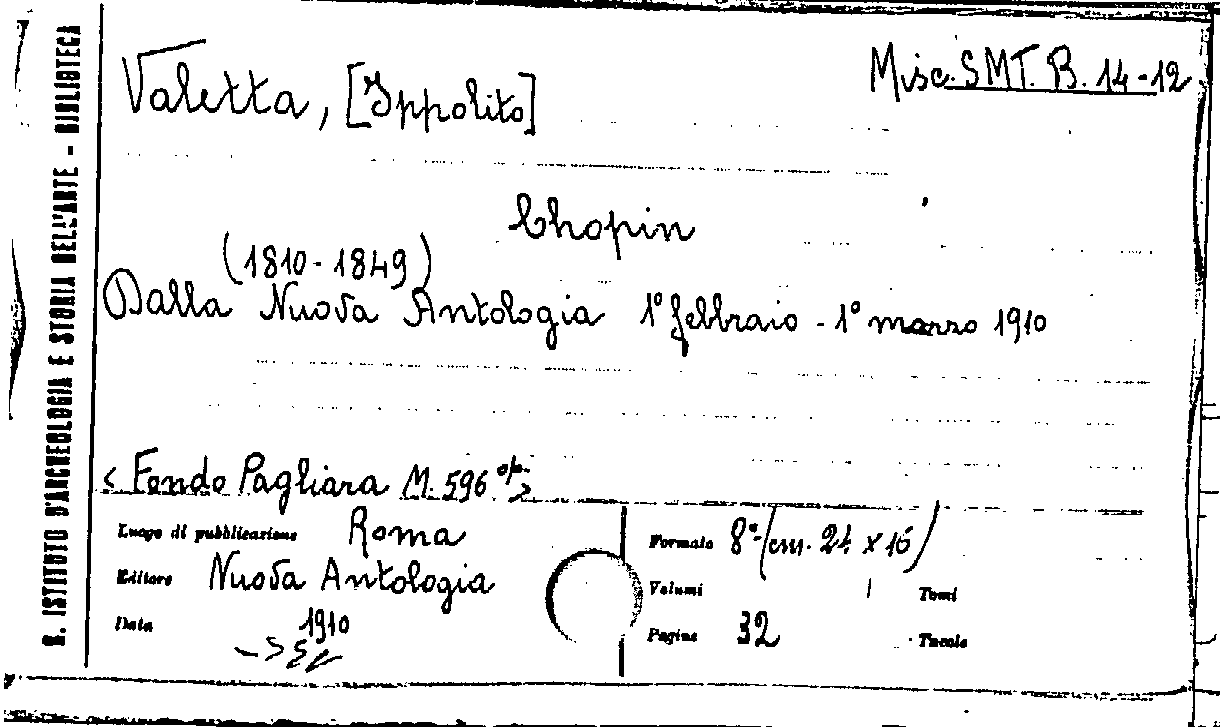 R. ISTITUTO D'ARCHEOLOGIA E STORIA DELL'ARTE - BIBLIOTECA
Misc. SMT. B. 14-12
Valetta, [Ippolito]
Chopin
(1810-1849)
Dalla Nuova Antologia 1° febbraio - 1° marzo 1910
< Fondo Pagliara M. 596 >
Luogo di pubblicazione Roma
Editore Nuova Antologia
Data 1910
Formato 8° (cm. 24 x 16)
Volumi Tomi
Pagine 32 Tavole